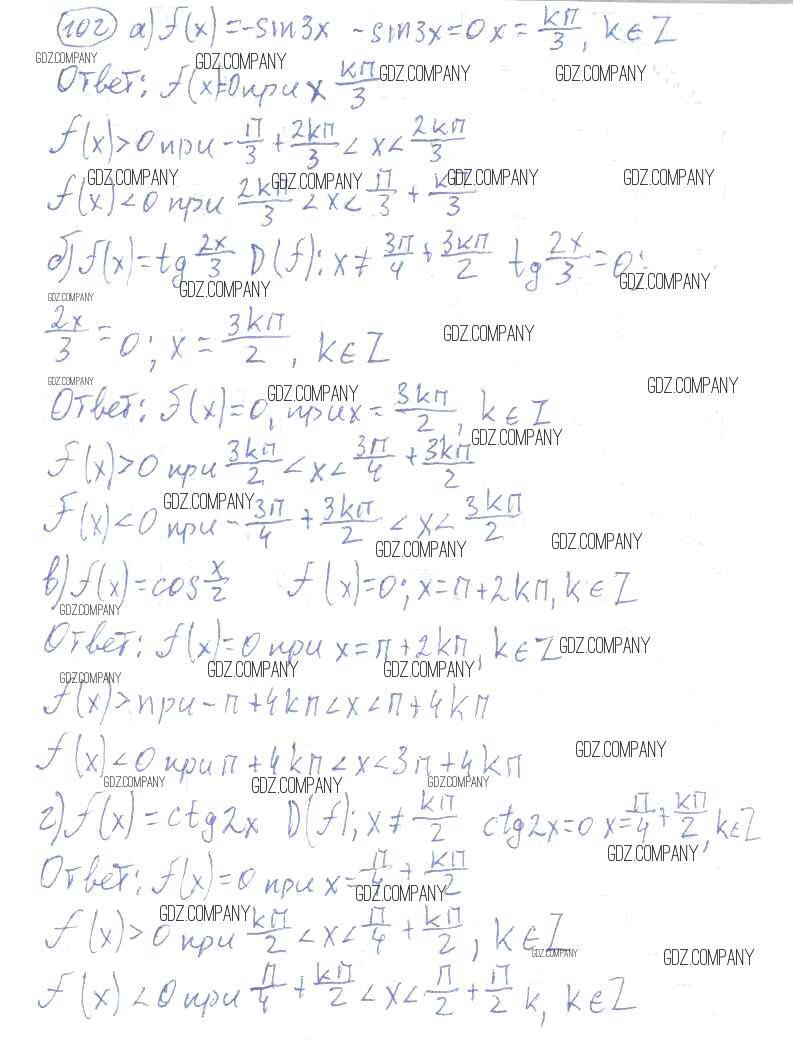 102 а) f(x) = -sin3x -sin3x=0 x = kп/3, k∈Z
GDZ.COMPANY GDZ.COMPANY
Ответ: f(x)=0 при x kп/3 GDZ.COMPANY GDZ.COMPANY
f(x)>0 при -п/3 + 2kп/3 < x < 2kп/3
GDZ.COMPANY GDZ.COMPANY GDZ.COMPANY GDZ.COMPANY
f(x)<0 при 2kп/3 < x < п/3 + kп/3
б) f(x) = tg 2x/3 D(f): x ≠ 3п/4 + 3kп/2 tg 2x/3 = 0;
GDZ.COMPANY GDZ.COMPANY GDZ.COMPANY
2x/3 = 0; x = 3kп/2, k∈Z GDZ.COMPANY
GDZ.COMPANY GDZ.COMPANY GDZ.COMPANY
Ответ: f(x)=0, при x = 3kп/2, k∈Z
GDZ.COMPANY
f(x)>0 при 3kп/2 < x < 3п/4 + 3kп/2
GDZ.COMPANY
f(x)<0 при -3п/4 + 3kп/2 < x < 3kп/2
GDZ.COMPANY GDZ.COMPANY
в) f(x) = cos x/2 f(x)=0; x=п+2kп, k∈Z
GDZ.COMPANY
Ответ: f(x)=0 при x=п+2kп, k∈Z GDZ.COMPANY
GDZ.COMPANY GDZ.COMPANY GDZ.COMPANY
f(x)> при -п+4kп<x<п+4kп
f(x)<0 при п+4kп<x<3п+4kп GDZ.COMPANY
GDZ.COMPANY GDZ.COMPANY GDZ.COMPANY
г) f(x) = ctg2x D(f); x ≠ kп/2 ctg2x=0 x = п/4 + kп/2, k∈Z
GDZ.COMPANY
Ответ: f(x)=0 при x = п/4 + kп/2
GDZ.COMPANY
GDZ.COMPANY
f(x)>0 при kп/2 < x < п/4 + kп/2, k∈Z
GDZ.COMPANY GDZ.COMPANY
f(x)<0 при п/4 + kп/2 < x < п/2 + п/2 k, k∈Z